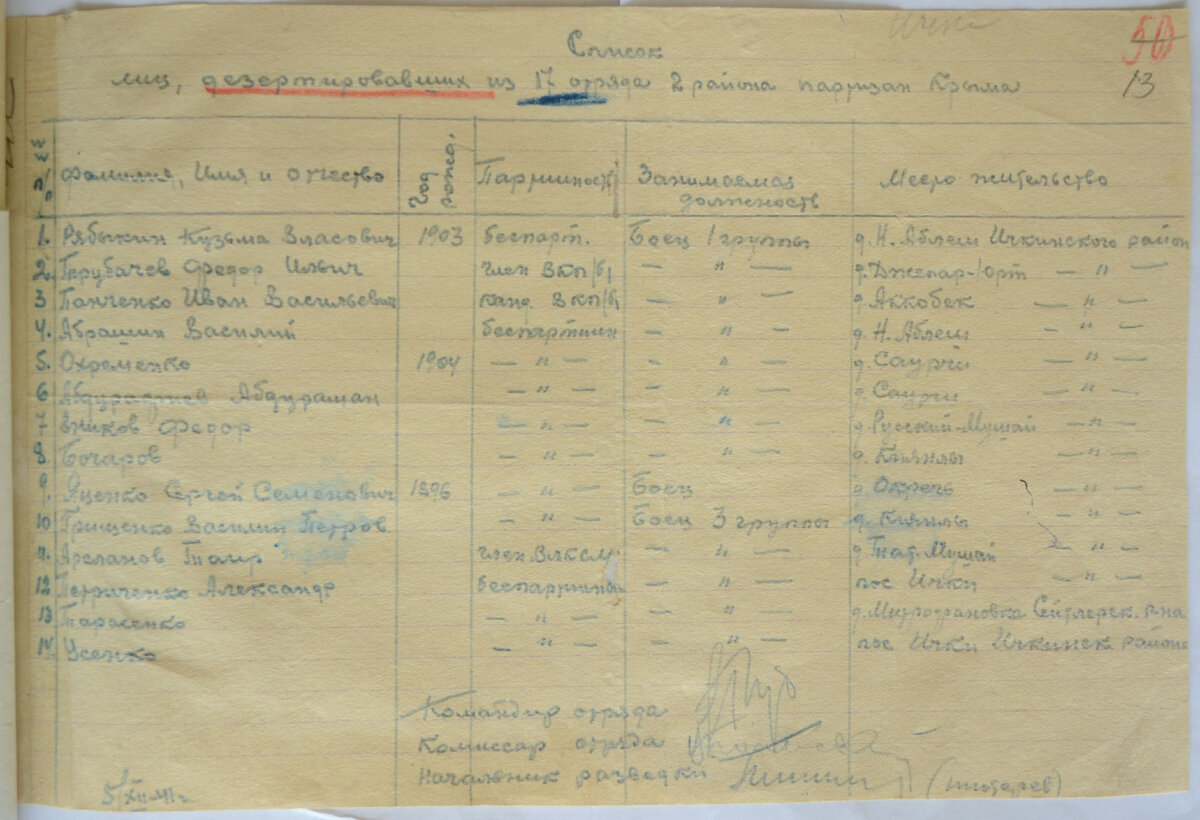 Ички
50
13
Список
лиц, дезертировавших из 17 отряда 2 района партизан Крыма
Фамилия, Имя и Отчество Год рожд. Партийность Занимаемая должность Место жительство
1. Рябыкин Кузьма Власович 1903 беспарт. Боец 1 группы д. Н. Аблеш Ичкинского район
2. Трубачев Федор Ильич член ВКП/б/ — " — д. Джепар-Юрт — " —
3 Панченко Иван Васильевич канд. ВКП/б/ — " — д. Аккобек — " —
4. Абрашин Василий беспартийн — " — д. Н. Аблеш — " —
5. Охременко 1904 — " — — " — д. Саурчи — " —
6 Абдурашан — " — — " — д. Саурчи — " —
7 Федор — " — — " — д. Русский-Мушай — " —
8. Бочаров — " — — " — д. Киянлы — " —
9. Яценко Сергей Семенович 1896 — " — Боец д. Окречь — " —
10 Грищенко Василий Петров — " — Боец 3 группы д. Киянлы — " —
11. Арсланов Таир член ВЛКСМ — " — д. Тат. Мушай — " —
12 Петриченко Александр беспартийн — " — пос Ички — " —
13 Тарасенко — " — — " — д. Митрофановка Сейтлерск. р-на
14. Усенко — " — — " — пос Ички Ичкинск района
Командир отряда
Комиссар отряда
Начальник разведки
5/XII-41г.